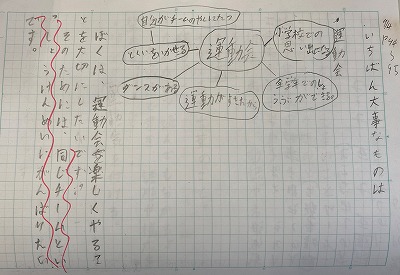 P94～95
いちばん大事なものは
運動会
小学校での思い出になる
全学年でのしょうぶができる。
運動会
自分がチームのやくにたつ
といをいかせる
ダンスがある
運動がすきだから。
ぼくは、運動会を楽しくやるこ
とを大切にしたいです。
そのためには、同じチームとい
っしょうけんめいにがんばりたい
です。